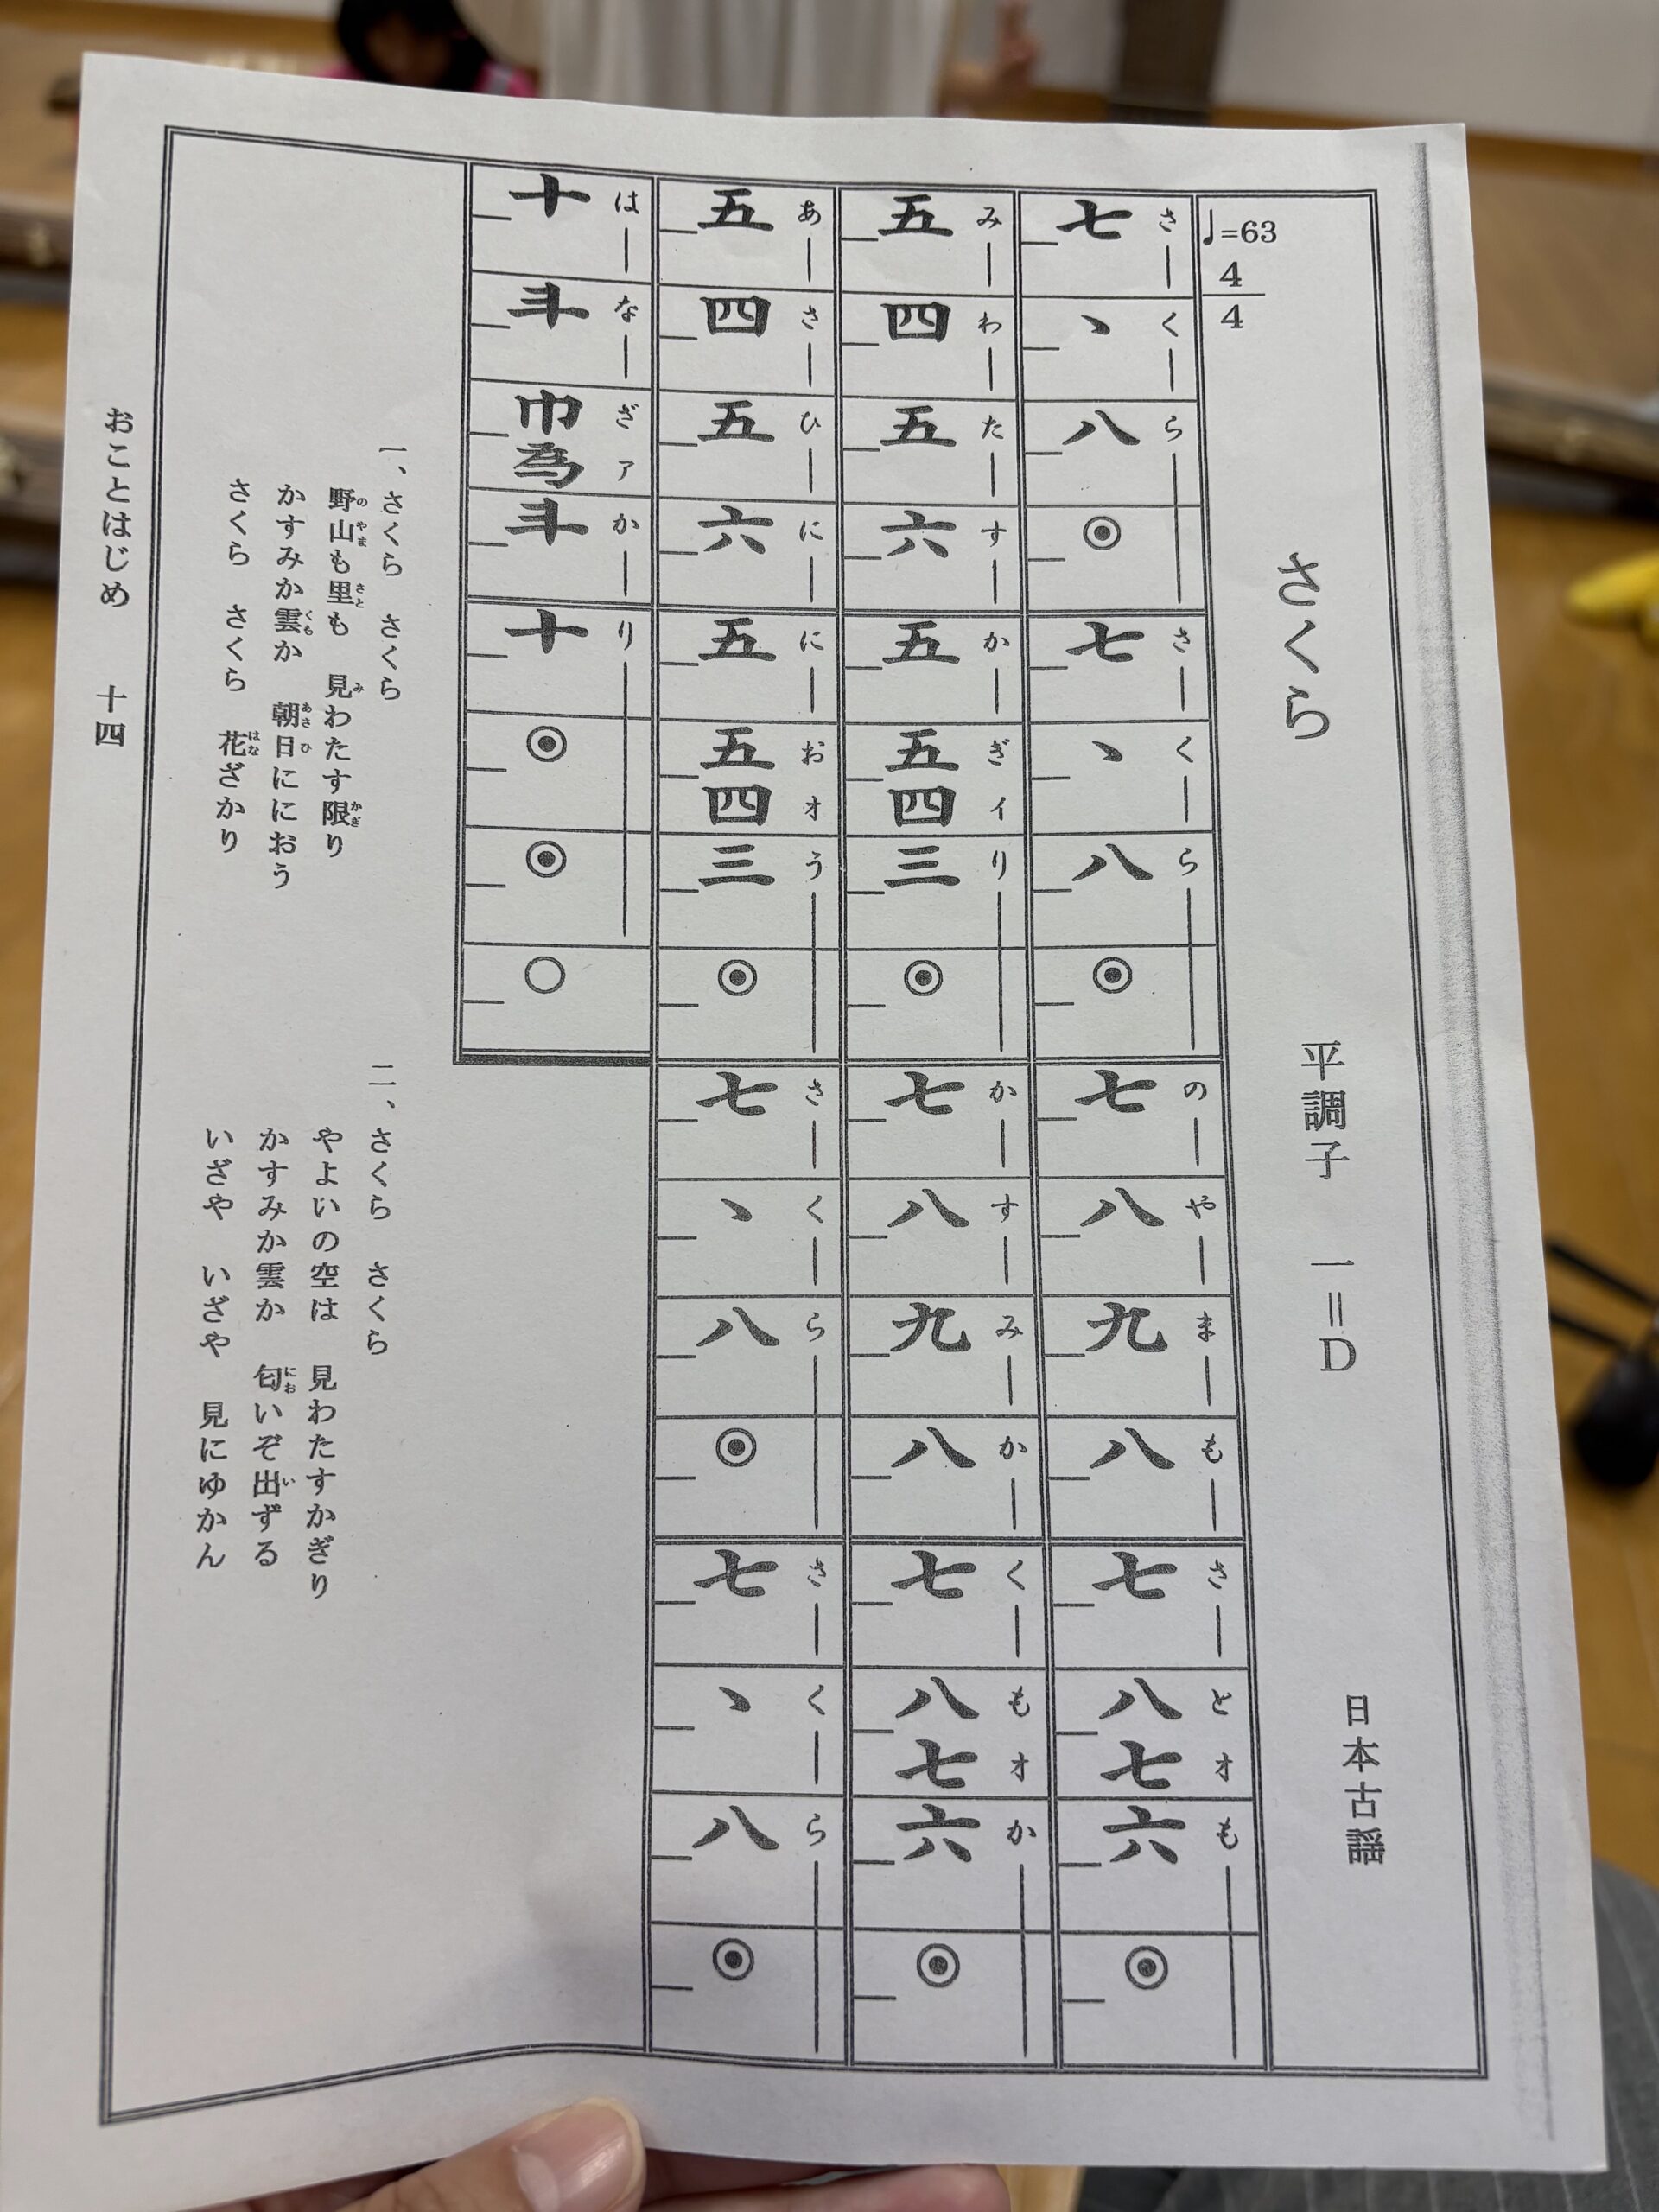 さくら　平調子　一=D　日本古謡
♩=63
4
4
さ｜く｜ら｜さ｜く｜ら｜の｜や｜ま｜も｜さ｜とオも｜
七ヽ八◉七ヽ八◉七八九八七八七六◉
み｜わ｜た｜す｜か｜ぎイり｜か｜す｜み｜か｜く｜もオか｜
五四五六五五四三◉七八九八七八七六◉
あ｜さ｜ひ｜に｜に｜おオう｜さ｜く｜ら｜さ｜く｜ら｜
五四五六五五四三◉七ヽ八◉七ヽ八◉
は｜な｜ざァか｜り｜
十斗巾為斗十◉◉○
一、さくら　さくら
野山も里も　見わたす限り
の やま さと み かぎ
かすみか雲か　朝日ににおう
くも あさ ひ
さくら　さくら　花ざかり
はな
二、さくら　さくら
やよいの空は　見わたすかぎり
かすみか雲か　匂いぞ出ずる
にお い
いざや　いざや　見にゆかん
おことはじめ　十四